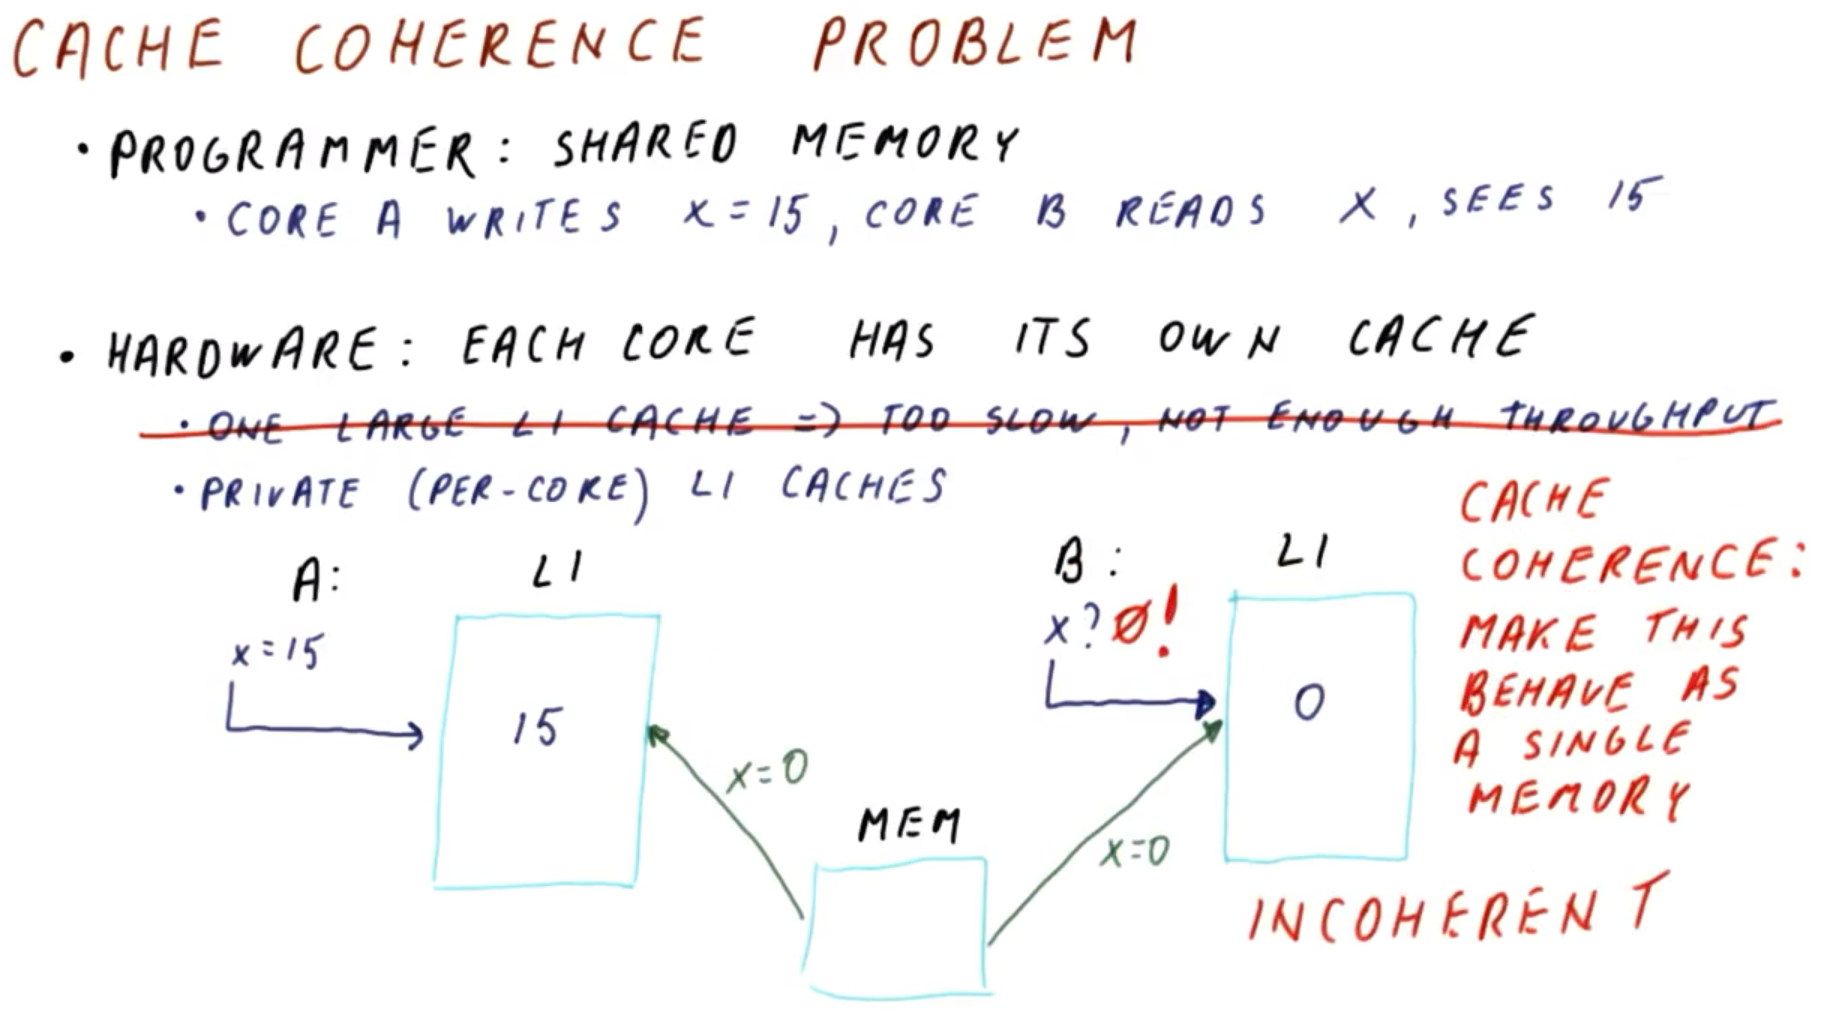 CACHE COHERENCE PROBLEM
• PROGRAMMER: SHARED MEMORY
• CORE A WRITES X=15, CORE B READS X, SEES 15
• HARDWARE: EACH CORE HAS ITS OWN CACHE
• ONE LARGE L1 CACHE => TOO SLOW, NOT ENOUGH THROUGHPUT
• PRIVATE (PER-CORE) L1 CACHES
A:
L1
x=15
15
x=0
MEM
B:
L1
x? 0!
0
x=0
CACHE
COHERENCE:
MAKE THIS
BEHAVE AS
A SINGLE
MEMORY
INCOHERENT